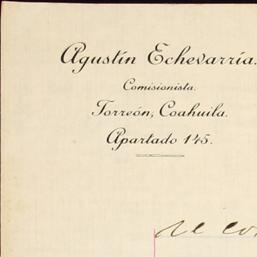 Agustín Echevarría.
Comisionista.
Torreón, Coahuila.
Apartado 145.